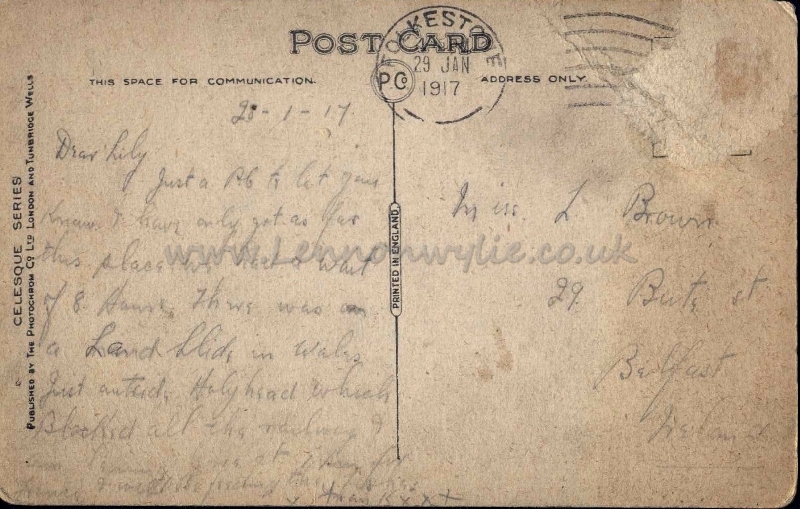 POST CARD
THIS SPACE FOR COMMUNICATION.
ADDRESS ONLY.
FOLKESTONE
29 JAN
1917
P.Co.
CELESQUE SERIES
PUBLISHED BY THE PHOTOCHROM CO LTD LONDON AND TUNBRIDGE WELLS
PRINTED IN ENGLAND
28-1-17
Dear Lily
Just a P.C. to let you
know I have only got as far
this place we had a wait
of 8 Hours. There was
a Land Slide in Wales
Just outside Holyhead which
Blocked all the railway I
am
Miss L Brown
29 Bute st
Belfast
Ireland
www.Lennonwylie.co.uk